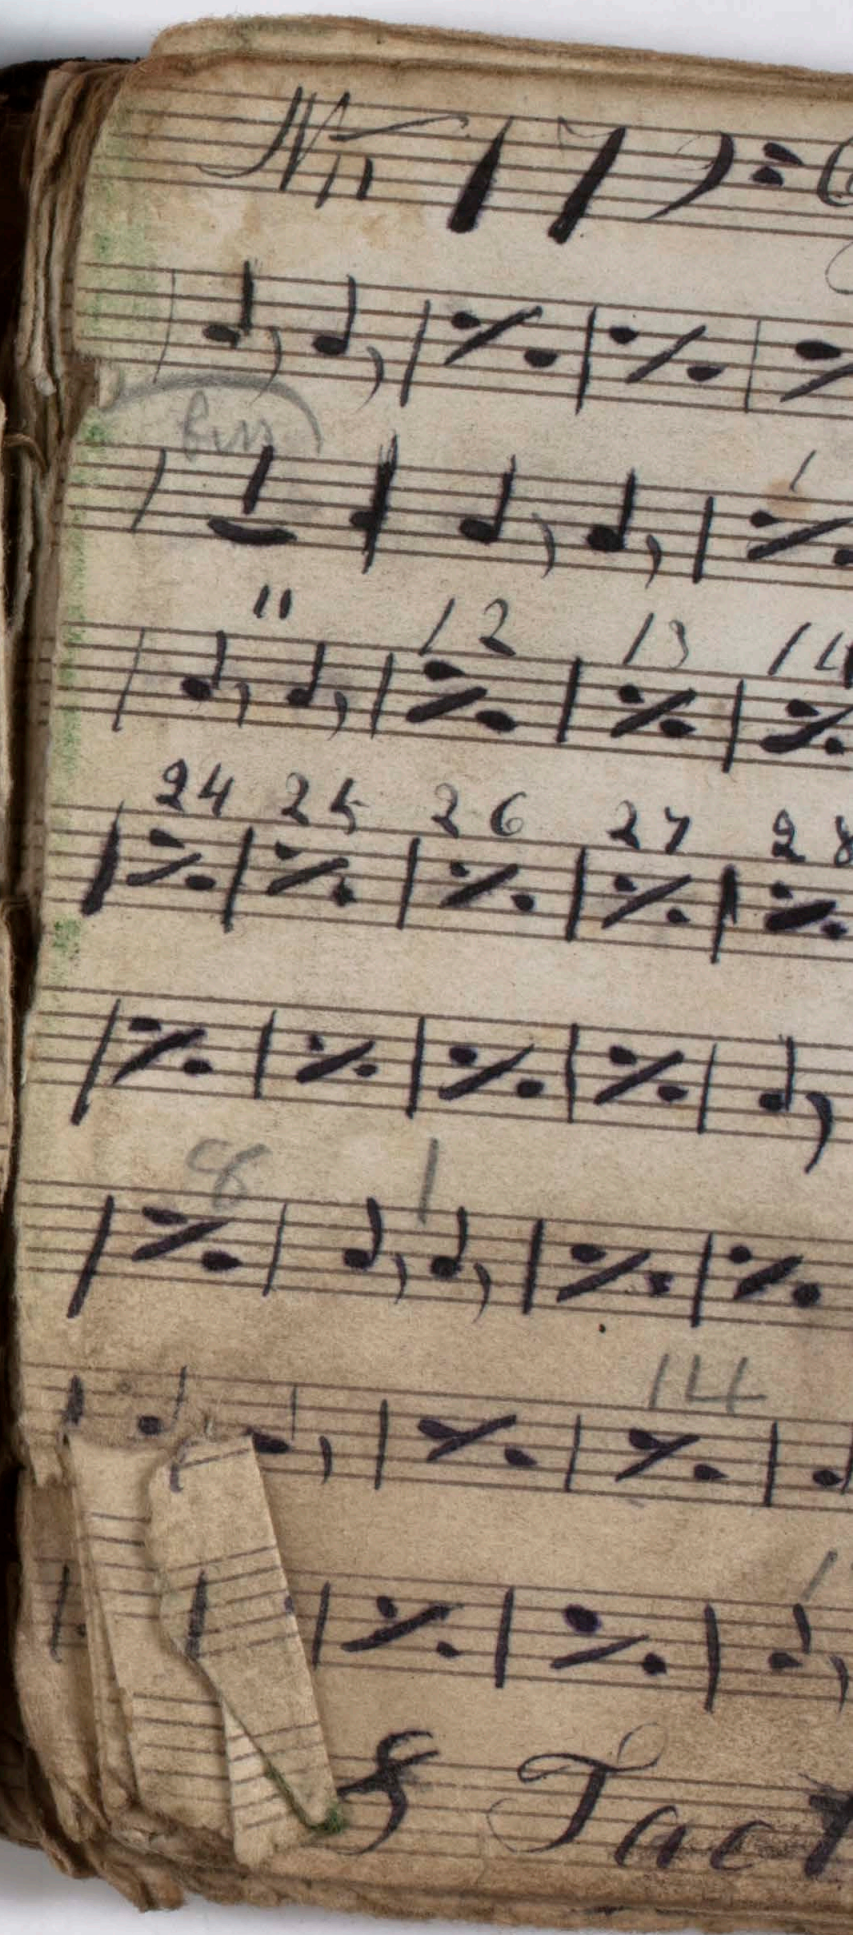 No 17
biss
11 12 13 14
24 25 26 27 28
8 1
14
1
Tact